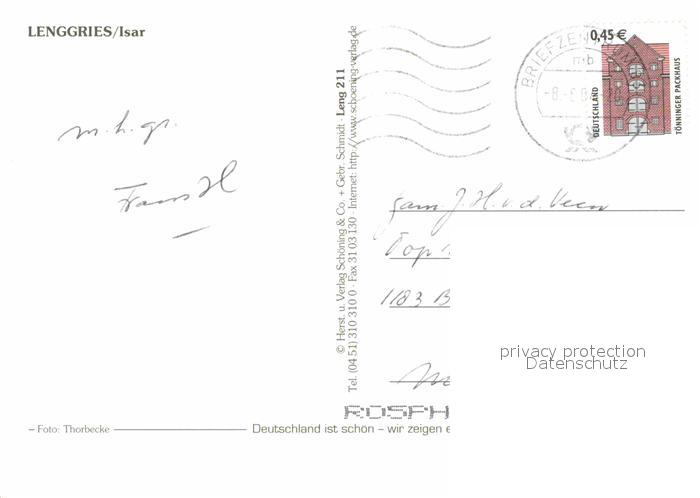 LENGGRIES/Isar
0,45 €
DEUTSCHLAND
TÖNNINGER PACKHAUS
BRIEFZEN
mb
m. h. gr.
Frans H
© Herst. u. Verlag Schöning & Co. + Gebr. Schmidt · Leng 211
Tel. (04 51) 310 310 0 · Fax 31 03 130 · Internet: http://www.schoening-verlag.de
fam. J. H. v. d. Veen
Top
1183 B
privacy protection
Datenschutz
– Foto: Thorbecke
Deutschland ist schön – wir zeigen e